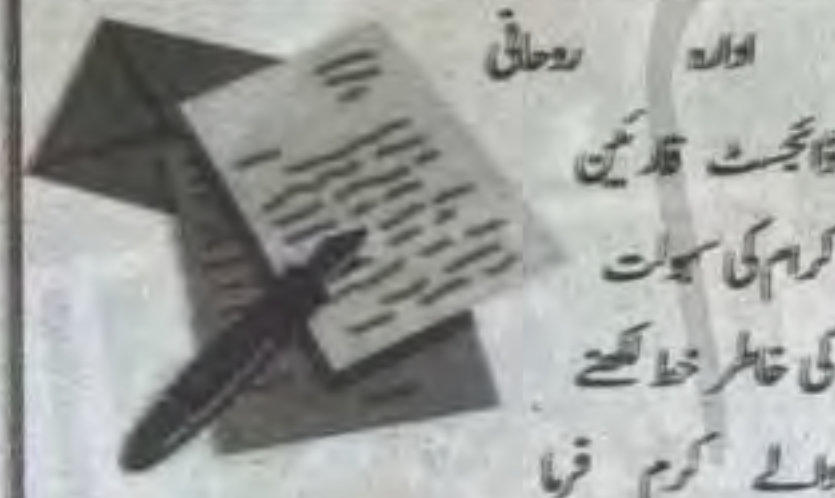 ادارہ روحانی
ڈائجسٹ قارئین
کرام کی سہولت
کی خاطر خط لکھنے
والے کرم فرما